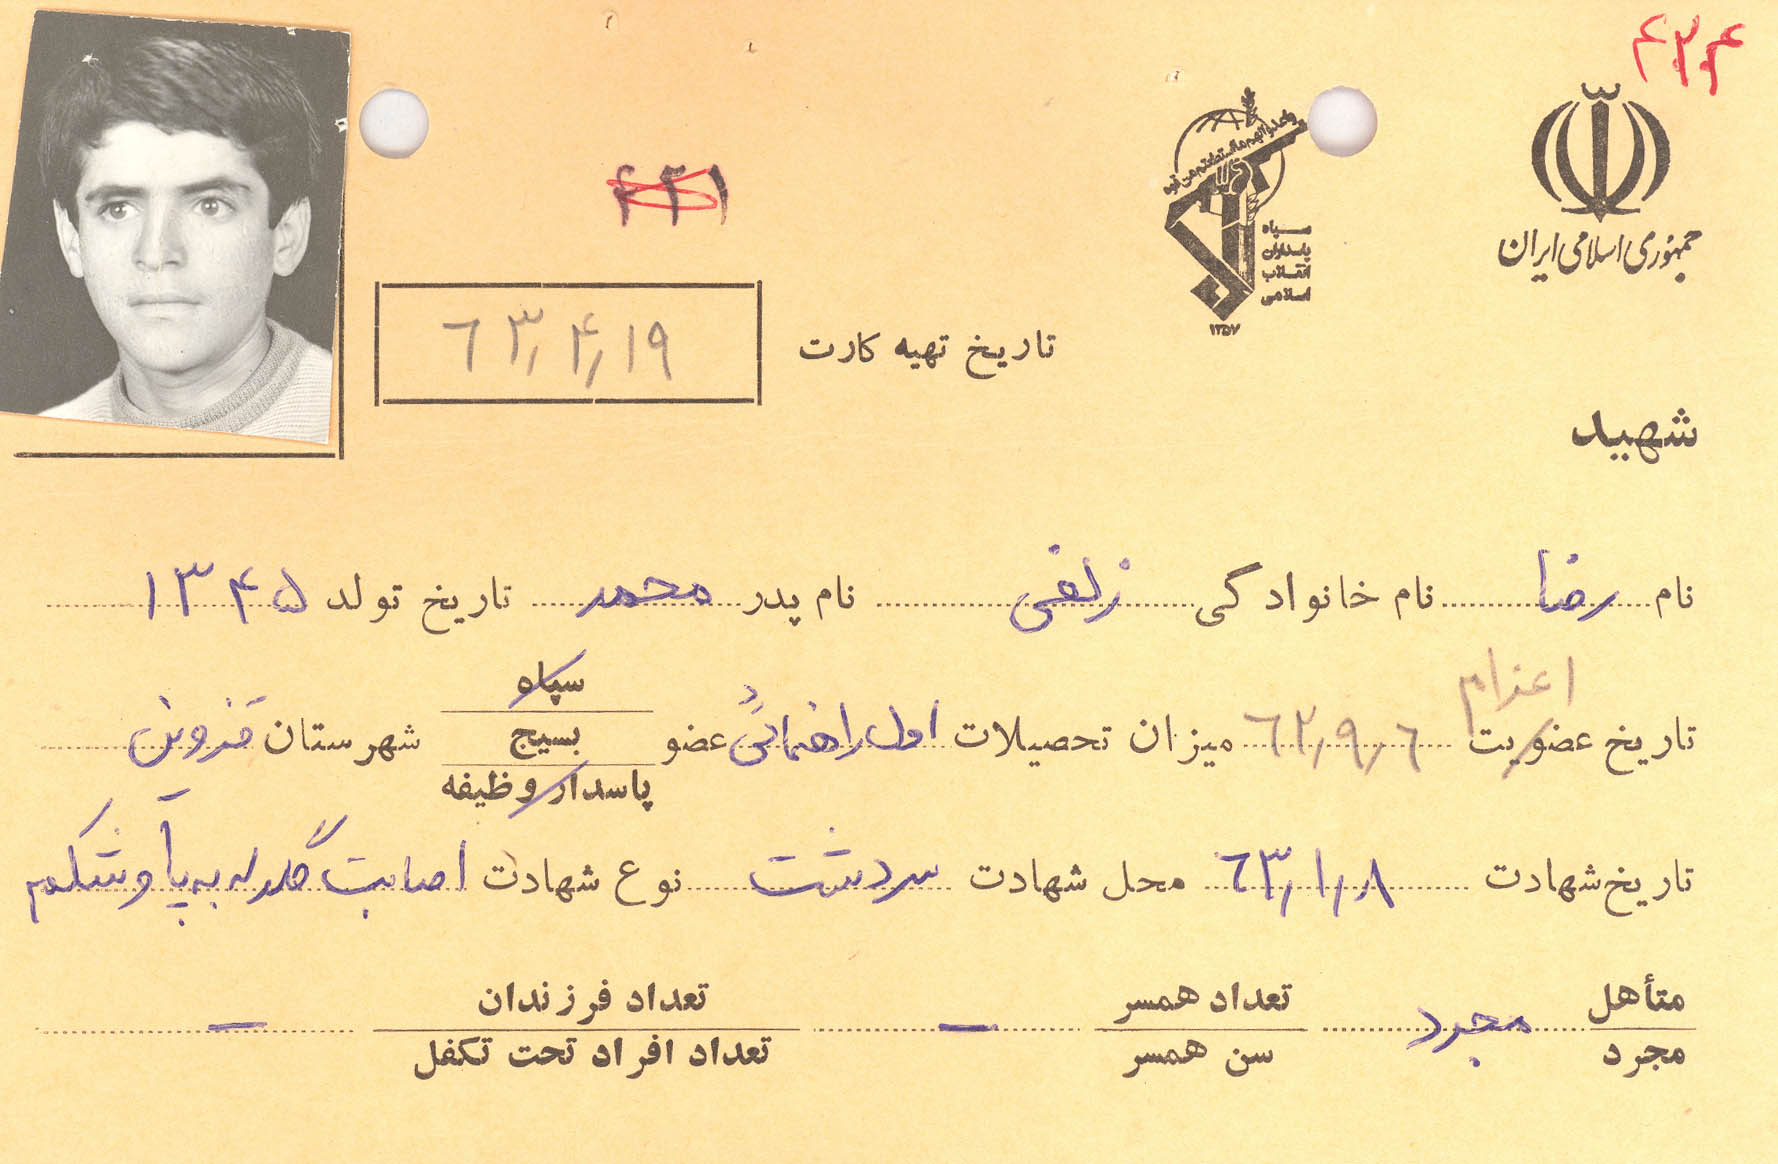 ۴۲۴
جمهوری اسلامی ایران
سپاه
پاسداران
انقلاب
اسلامی
۱۳۵۷
۴۲۱
تاریخ تهیه کارت ۶۳/۴/۱۹
شهید
نام رضا نام خانوادگی زلفی نام پدر محمد تاریخ تولد ۱۳۴۵
اعزام
تاریخ عضویت ۶۲/۹/۶ میزان تحصیلات اول راهنمائی عضو سپاه بسیج پاسدار وظیفه شهرستان قزوین
تاریخ شهادت ۶۳/۱/۸ محل شهادت سردشت نوع شهادت اصابت گلوله به پا و شکم
متأهل مجرد مجرد تعداد همسر سن همسر — تعداد فرزندان تعداد افراد تحت تکفل —